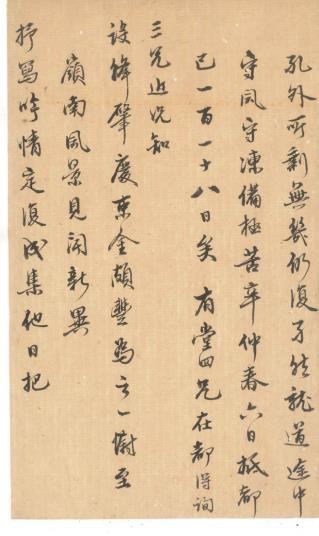 孔外所剩無幾仍復孑然就道途中
守風守凍備極苦辛仲春六日抵都
已一百一十八日矣有堂四兄在都得詢
三兄近況知
設絳肇慶束金頗豐為之一慰至
嶺南風景見聞新異
抒寫吟情定復成集他日把